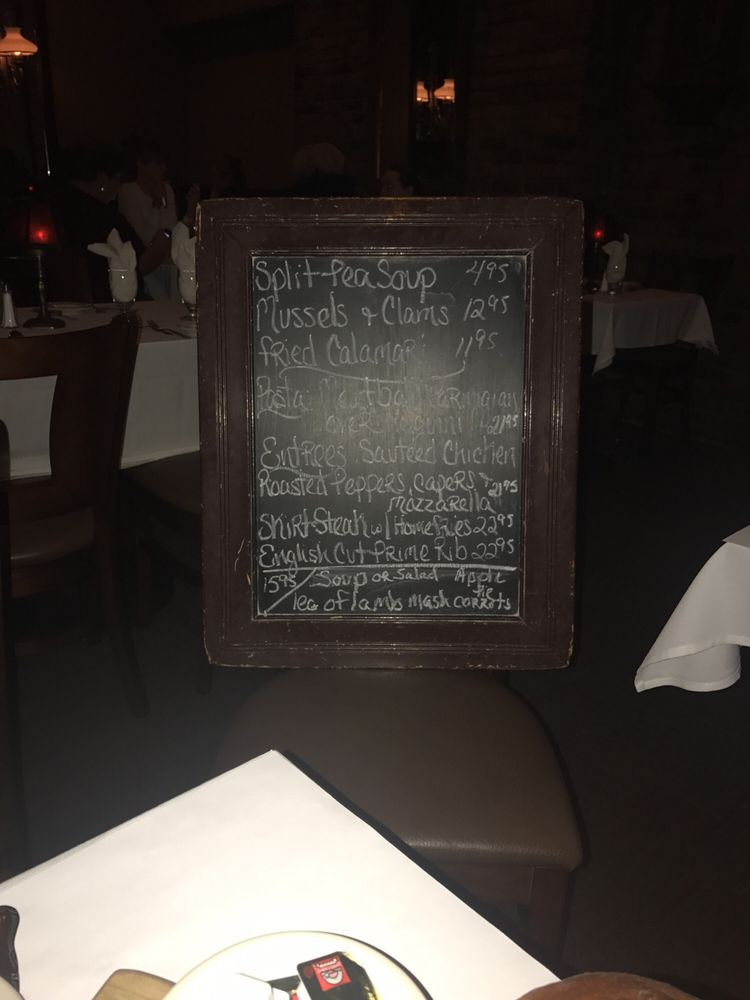 Split-Pea Soup 4.95
Mussels + Clams 12.95
Fried Calamari 11.95
Pasta: Meatball Parmigian
over 21.95
Entrees Sauteed Chicken
Roasted Peppers, Capers + 21.95
Mozzarella
Skirt Steak w/ Homefries 22.95
English Cut Prime Rib 22.95
15.95 / Soup or Salad Apple Pie
leg of lamb mash carrots